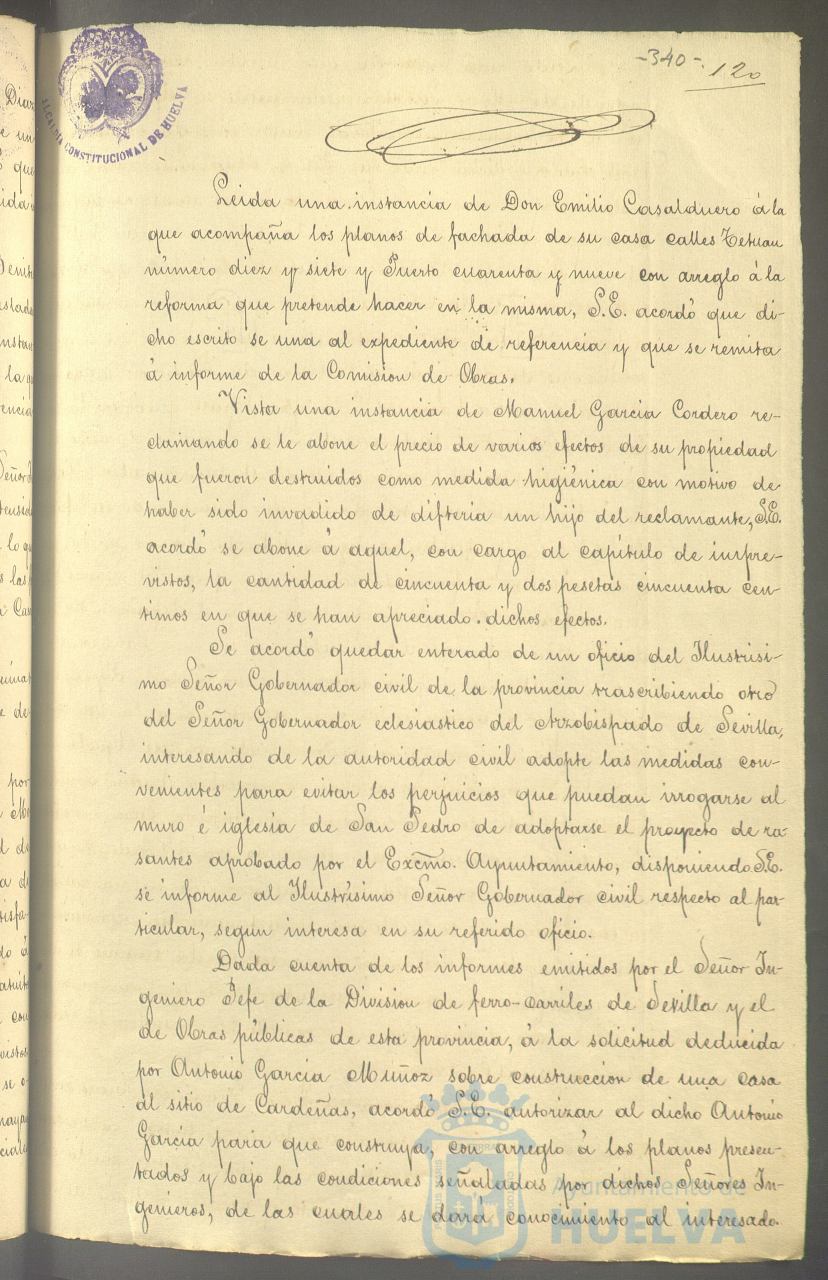 -340-
120
ALCALDIA CONSTITUCIONAL DE HUELVA
Leida una instancia de Don Emilio Casalduero á la
que acompaña los planos de fachada de su casa calles Tetuan
número diez y siete y Puerto cuarenta y nueve con arreglo á la
reforma que pretende hacer en la misma, S.E. acordó que di-
cho escrito se una al expediente de referencia y que se remita
á informe de la Comision de Obras.
Vista una instancia de Manuel García Cordero re-
clamando se le abone el precio de varios efectos de su propiedad
que fueron destruidos como medida higiénica con motivo de
haber sido invadido de difteria un hijo del reclamante, S.E.
acordó se abone á aquel, con cargo al capítulo de impre-
vistos, la cantidad de cincuenta y dos pesetas cincuenta cen-
timos en que se han apreciado dichos efectos.
Se acordó quedar enterado de un oficio del Ilustrisi-
mo Señor Gobernador civil de la provincia trascribiendo otro
del Señor Gobernador eclesiastico del Arzobispado de Sevilla,
interesando de la autoridad civil adopte las medidas con-
venientes para evitar los perjuicios que puedan irrogarse al
muro é iglesia de San Pedro de adoptarse el proyecto de ra-
santes aprobado por el Excmo. Ayuntamiento, disponiendo S.E.
se informe al Ilustrísimo Señor Gobernador civil respecto al par-
ticular, segun interesa en su referido oficio.
Dada cuenta de los informes emitidos por el Señor In-
geniero Jefe de la Division de ferro-carriles de Sevilla y el
de Obras públicas de esta provincia, á la solicitud deducida
por Antonio García Muñoz sobre construccion de una casa
al sitio de Cardeñas, acordó S.E. autorizar al dicho Antonio
García para que construya, con arreglo á los planos presen-
tados y bajo las condiciones señaladas por dichos Señores In-
genieros, de las cuales se dará conocimiento al interesado.
Ayuntamiento de
HUELVA